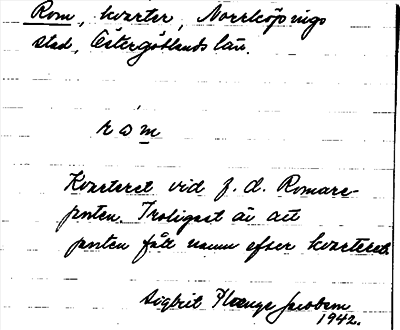 Rom, kvarter, Norrköpings
stad, Östergötlands län.
rom
Kvarteret vid f.d. Romare-
porten. Troligast är att
porten fått namn efter kvarteret.
Sigbrit Jacobson
1942.